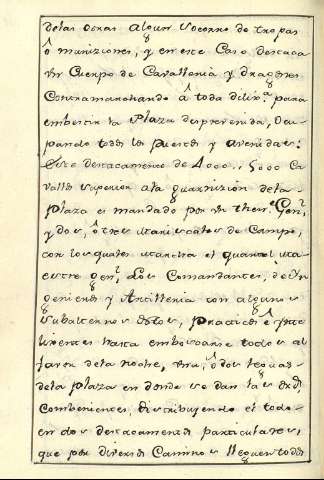 de las otras algun socorro de tropas
ó municiones, y en este caso destaca
un Cuerpo de Cavalleria y dragones
Contramarchando á toda dilig.ª para
embestir la Plaza desprevenida, Ocu-
pando todos los puestos y avenidas:
Este destacamento de 4000.. 5000 Ca-
vallos superior a la guarnizion de la
Plaza es mandado por un Then.te Gen.l
y dos, ó tres Mariscales de Campo,
con los quales marcha el quartel Ma-
estre gen.l Los Comandantes, de In-
genieros y Artilleria con algunos
subalternos
hasta emboscarse todos al
favor de la noche, una, ó dos leguas
de la plaza en donde se dan las ord.s
Combenientes, distribuyendo el todo
en dos destacamentos particulares,
que por diversos Caminos lleguen todos